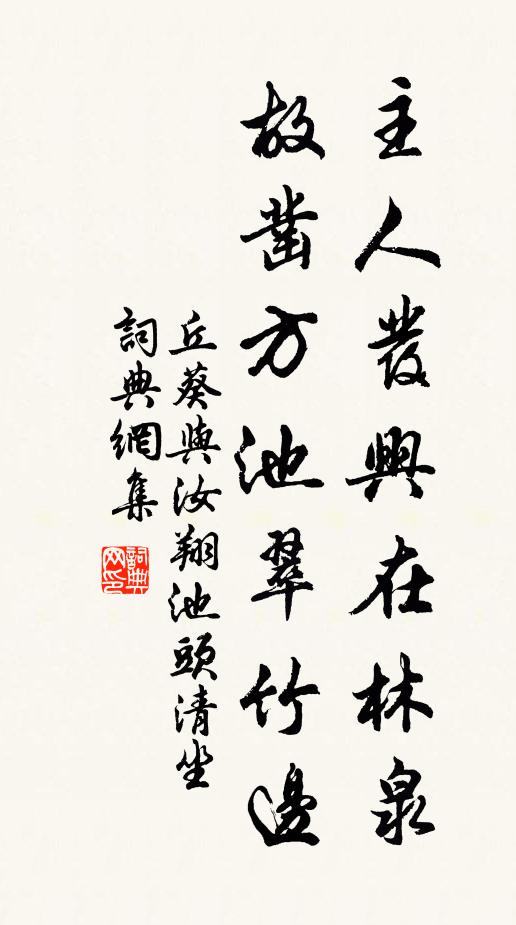 主人發興在林泉
故凿方池翠竹邊
丘葵與汝翔池頭清坐
詞典網集
詞典网印